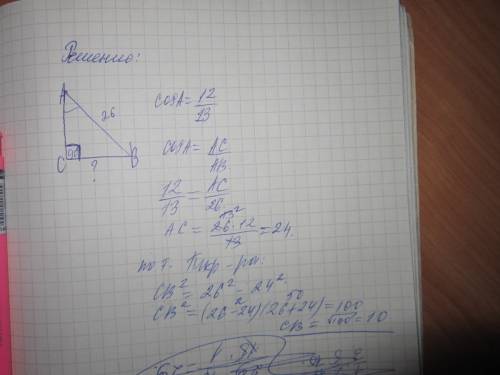 Решение:
A
26
C 90° B
?
cosA = 12/13
cosA = AC/AB
12/13 = AC/26
AC = 26² · 12/13 = 24.
по т. Пифа-ра:
CB² = 26² - 24²
CB² = (26² - 24)(26 + 24)⁵⁰ = 100
CB = √100 = 10